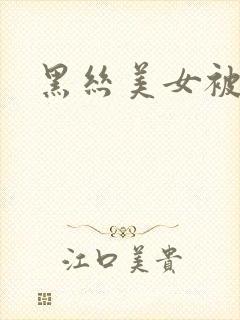 黑丝美女被
江口美贵